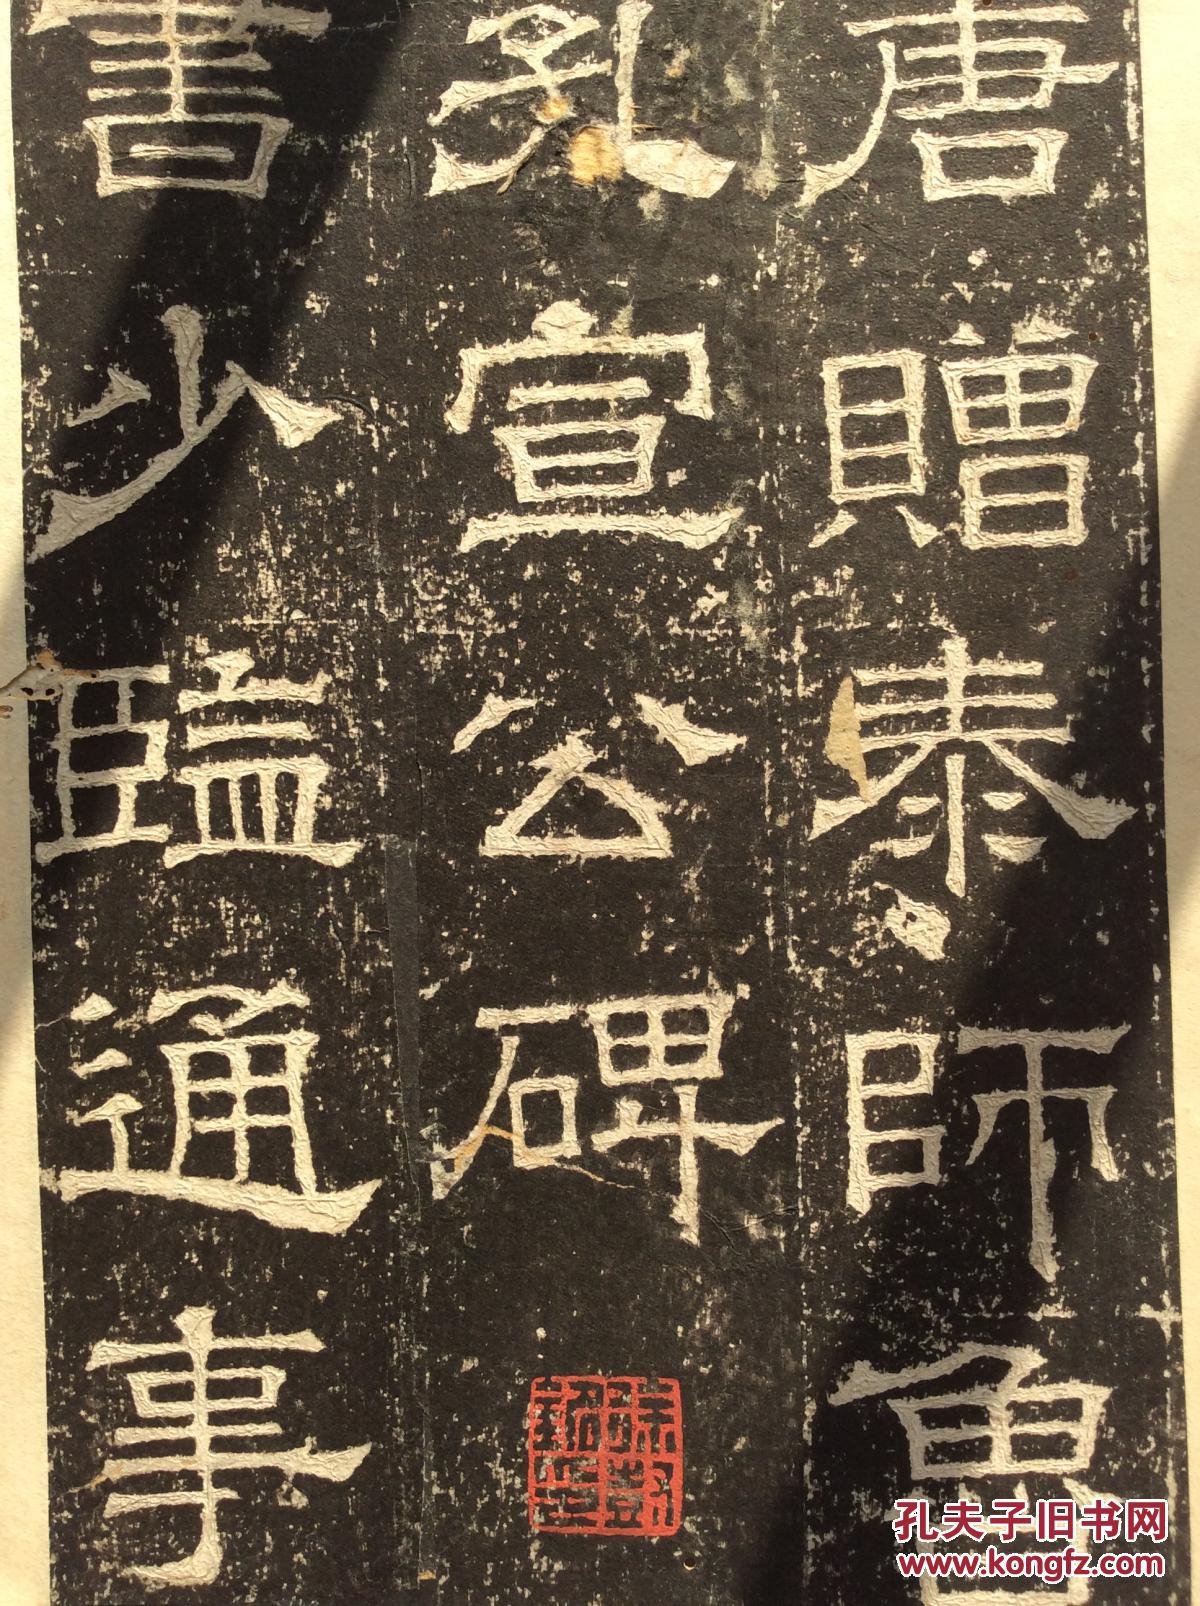 唐贈泰師魯
孔宣公碑
書少監通事
孔夫子旧书网
www.kongfz.com